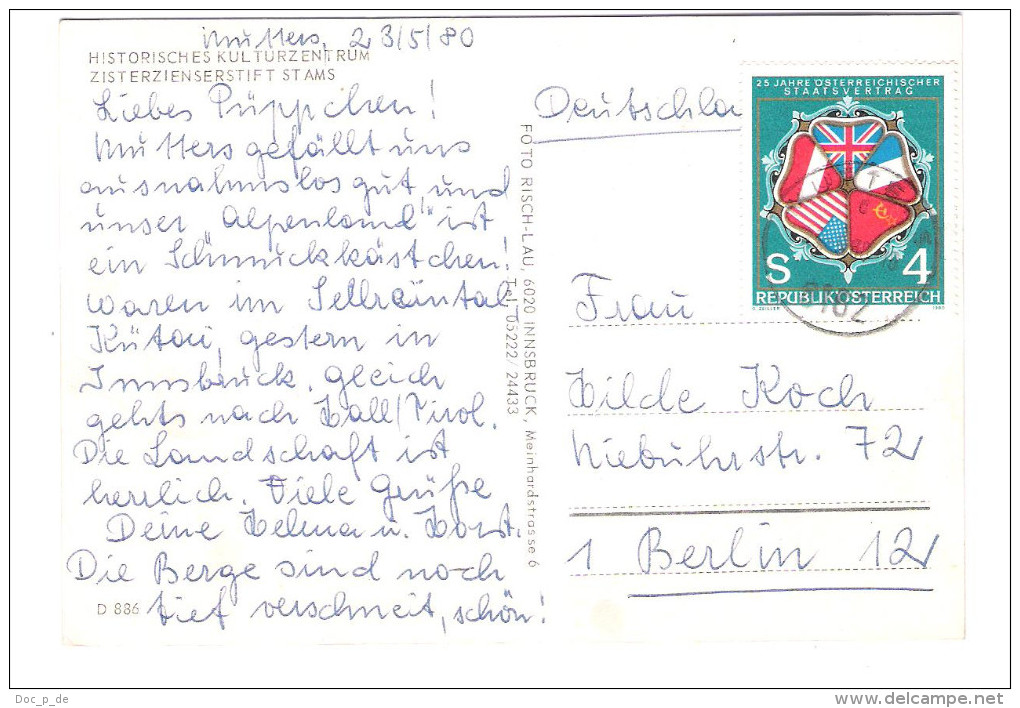 Mutters, 23/5/80
HISTORISCHES KULTURZENTRUM
ZISTERZIENSERSTIFT STAMS
Liebes Püppchen!
Mutters gefällt uns
ausnahmslos gut und
unser "Alpenland" ist
ein Schmuckkästchen!
Waren im Sellraintal
Kütai, gestern in
Innsbruck. Gleich
gehts nach Hall/Tirol.
Die Landschaft ist
herrlich. Viele Grüße
Deine Helma u. Horst.
Die Berge sind noch
tief verschneit, schön!
D 886
FOTO RISCH-LAU, 6020 INNSBRUCK, Meinhardstrasse 6
Tel. 05222/24433
Deutschla
25 JAHRE ÖSTERREICHISCHER
STAATSVERTRAG
S 4
REPUBLIK ÖSTERREICH
1980
Frau
Hilde Koch
Niebuhrstr. 72
1 Berlin 12
Doc_p_de
www.delcampe.net